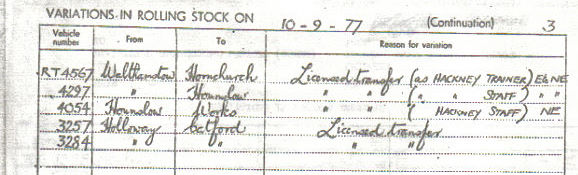 VARIATIONS IN ROLLING STOCK ON 10-9-77 (Continuation) 3
Vehicle number From To Reason for variation
RT4567 Walthamstow Hornchurch Licensed transfer (as HACKNEY TRAINER) E&NE
4297 " Hounslow " " ( " " STAFF) " "
4054 Hounslow Works " " ( HACKNEY STAFF) NE
3257 Holloway Catford Licensed transfer
3284 " " " "